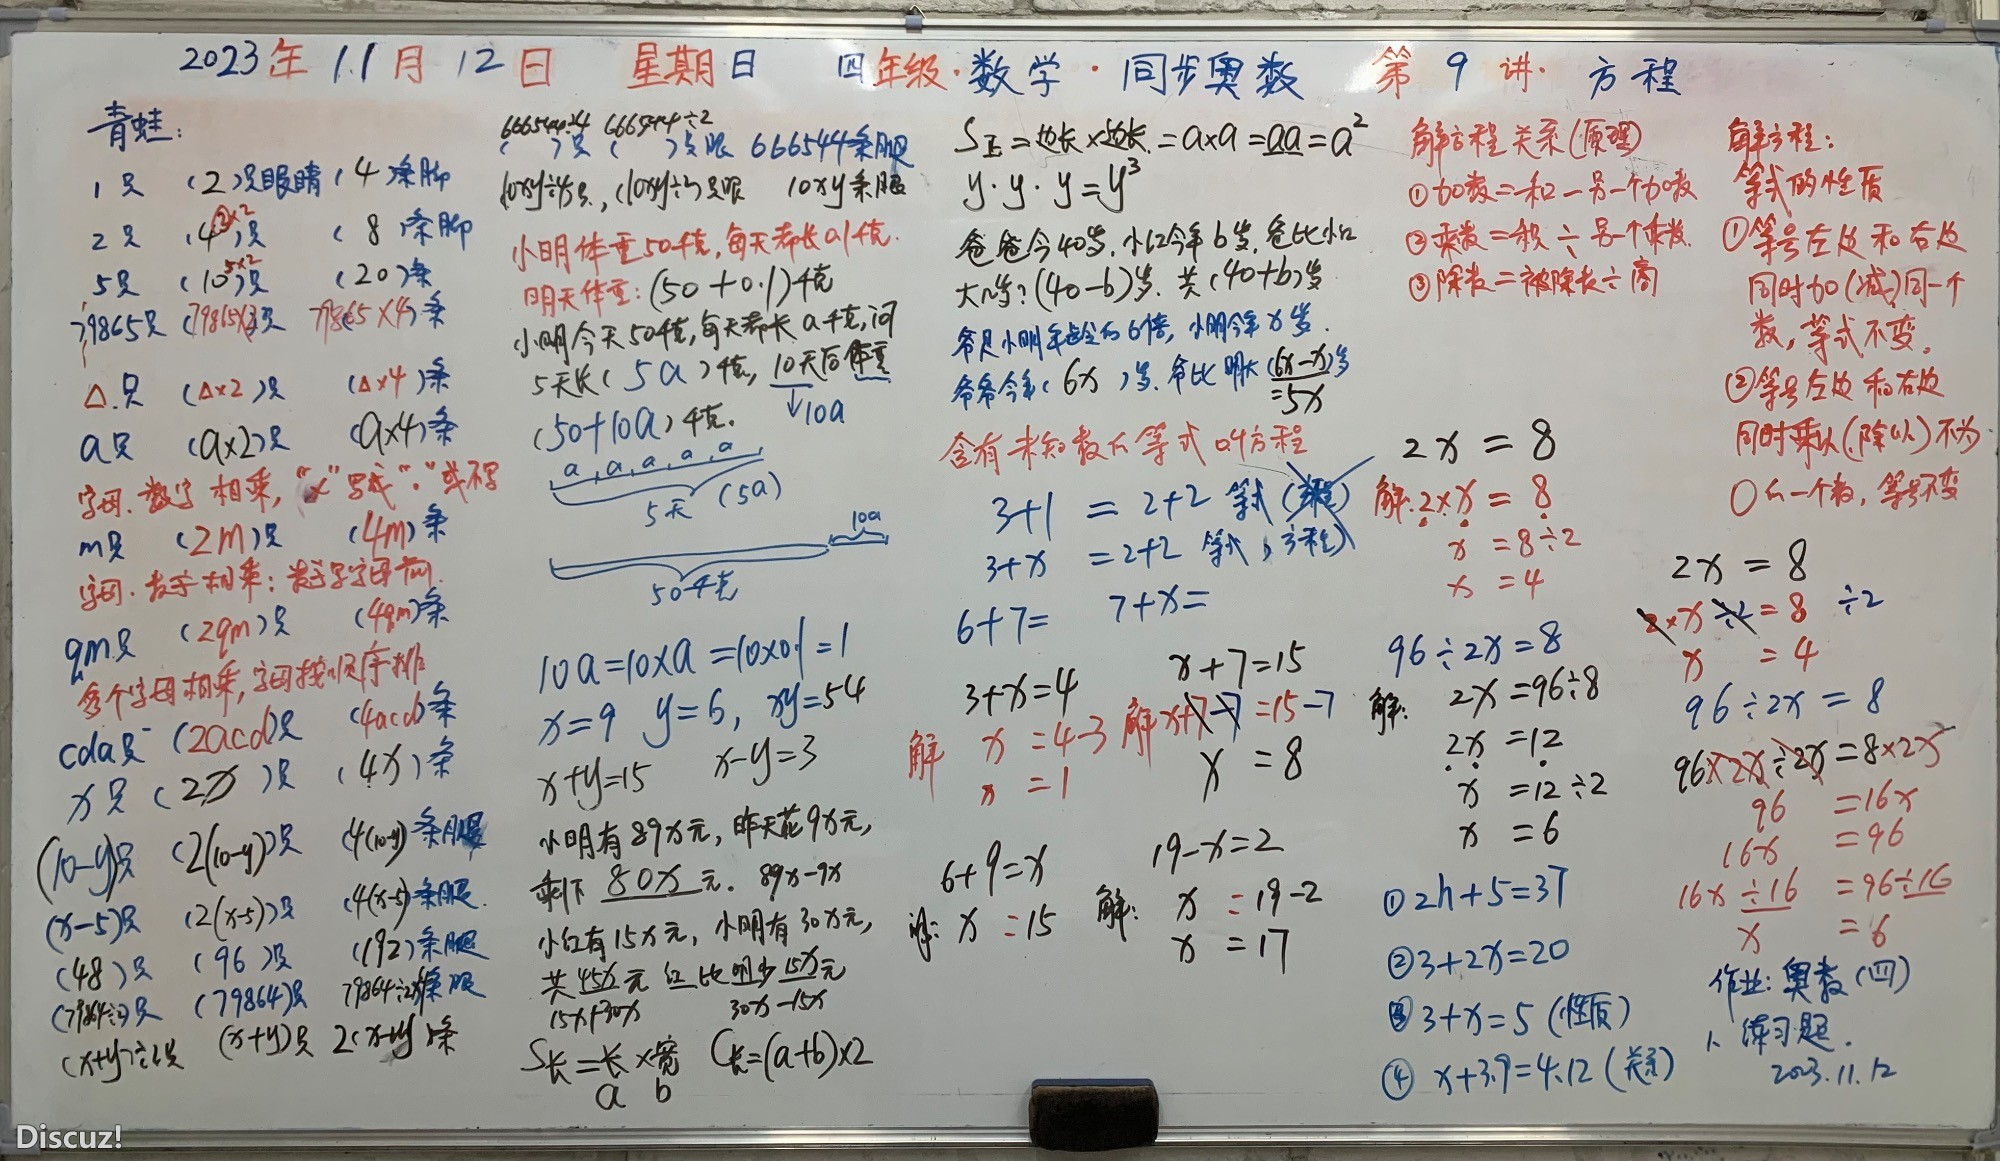 2023年 11月 12日 星期日 四年级·数学·同步奥数 第 9 讲· 方程
青蛙:
1只 (2)只眼睛 (4)条脚
2只 (4)只 2×2 (8)条脚
5只 (10)只 5×2 (20)条
79865只 (79865×2)只 (79865×4)条
△只 (△×2)只 (△×4)条
a只 (a×2)只 (a×4)条
字母.数字相乘,"×"写成"·"或不写
m只 (2m)只 (4m)条
字母.数字相乘:数字写字母前.
qm只 (2qm)只 (4qm)条
多个字母相乘,字母按顺序排
cda只 (2acd)只 (4acd)条
x只 (2x)只 (4x)条
(10-y)只 (2(10-y))只 (4(10-y))条腿
(x-5)只 (2(x-5))只 (4(x-5))条腿.
(48)只 (96)只 (192)条腿
(79864÷2)只 (79864)只 79864÷2×4条腿
(x+y)÷2只 (x+y)只 2(x+y)条
666544÷4 666544÷2
( )只 ( )只眼 666544条腿
(10xy÷4)只,(10xy÷2)只眼 10xy条腿
小明体重50千克,每天都长0.1千克.
明天体重:(50+0.1)千克
小明今天50千克,每天都长a千克,问
5天长(5a)千克,10天后体重
(50+10a)千克. 10a
a a a a a
5天 (5a)
10a
50千克
10a=10×a=10×0.1=1
x=9 y=6, xy=54
x+y=15 x-y=3
小明有89x元,昨天花9x元,
剩下 80x 元. 89x-9x
小红有15x元,小明有30x元,
共45x元 红比明少15x元
15x+30x 30x-15x
S长=长×宽 C长=(a+b)×2
a b
S正=边长×边长=a×a=aa=a²
y·y·y=y³
爸爸今40岁,小红今年b岁,爸比小红
大几岁?(40-b)岁.共(40+b)岁
爷是小明年龄的6倍,小明今年x岁.
爷爷今年(6x)岁.爷比明大(6x-x)岁
=5x
含有未知数的等式叫方程
3+1 = 2+2 等式(方程)
3+x =2+2 等式(方程)
6+7= 7+x=
3+x=4
解 x =4-3
x =1
x+7=15
解 x+7-7=15-7
x =8
6+9=x
解: x =15
19-x=2
解: x =19-2
x =17
解方程关系(原理)
①加数=和-另一个加数
②乘数=积÷另一个乘数.
③除数=被除数÷商
2x = 8
解:2×x = 8
x =8÷2
x =4
96÷2x=8
解: 2x =96÷8
2x =12
x =12÷2
x =6
①2h+5=37
②3+2x=20
③3+x=5(性质)
④ x+3.9=4.12(关系)
解方程:
等式的性质
①等号左边和右边
同时加(减)同一个
数,等式不变.
②等号左边和右边
同时乘以(除以)不为
0的一个数,等号不变
2x = 8
2×x÷2 = 8 ÷2
x = 4
96÷2x = 8
96×2x÷2x=8×2x
96 =16x
16x =96
16x÷16 =96÷16
x =6
作业:奥数(四)
1、练习题.
2023.11.12
Discuz!